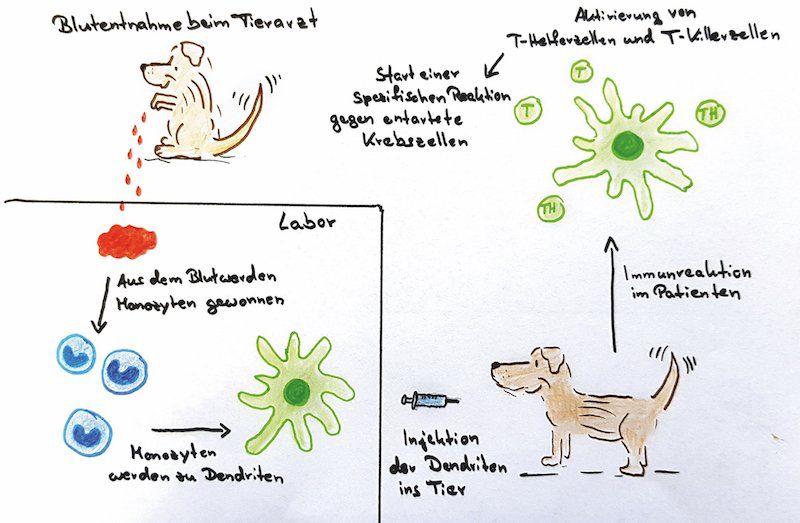 Blutentnahme beim Tierarzt
Labor
Aus dem Blut werden
Monozyten gewonnen
Monozyten
werden zu Dendriten
Injektion
der Dendriten
ins Tier
Immunreaktion
im Patienten
Aktivierung von
T-Helferzellen und T-Killerzellen
T
T
TH
TH
Start einer
spezifischen Reaktion
gegen entartete
Krebszellen